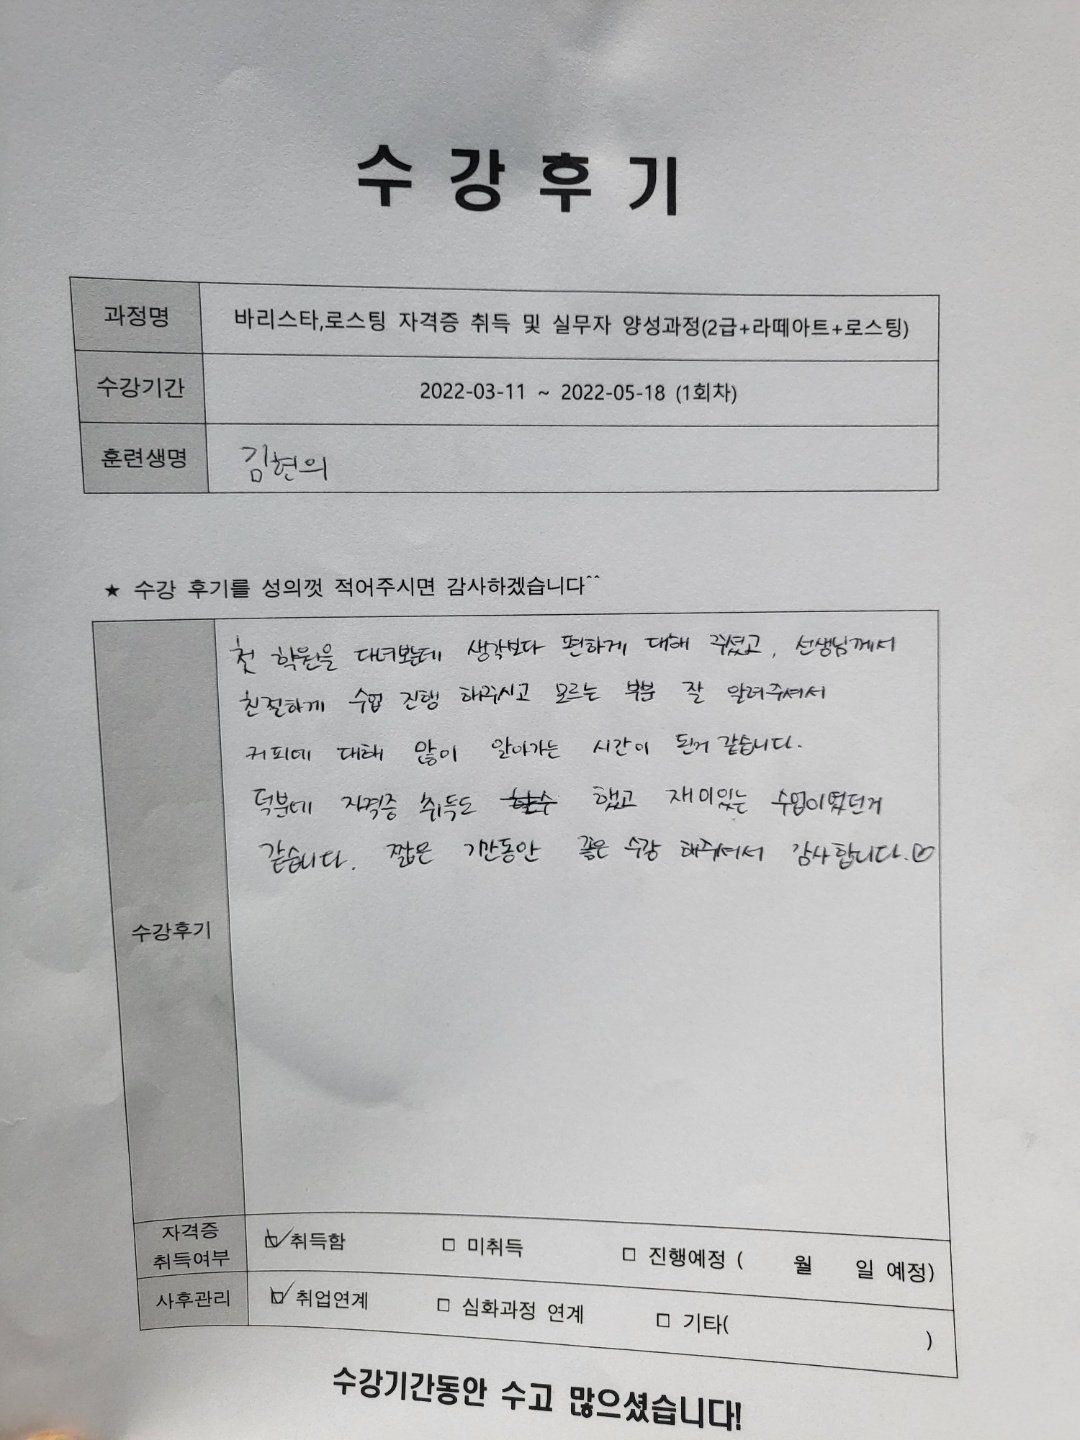 수강후기
과정명 바리스타,로스팅 자격증 취득 및 실무자 양성과정(2급+라떼아트+로스팅)
수강기간 2022-03-11 ~ 2022-05-18 (1회차)
훈련생명 김현의
★ 수강 후기를 성의껏 적어주시면 감사하겠습니다^^
첫 학원을 다녀봤는데 생각보다 편하게 대해 주셨고, 선생님께서
친절하게 수업 진행 해주시고 모르는 부분 잘 알려주셔서
커피에 대해 많이 알아가는 시간이 된거 같습니다.
덕분에 자격증 취득도 했고 재미있는 수업이였던거
같습니다. 짧은 기간동안 좋은 수강 해주셔서 감사합니다.♡
수강후기
자격증 취득여부 ☑ 취득함 □ 미취득 □ 진행예정 ( 월 일 예정)
사후관리 ☑ 취업연계 □ 심화과정 연계 □ 기타( )
수강기간동안 수고 많으셨습니다!